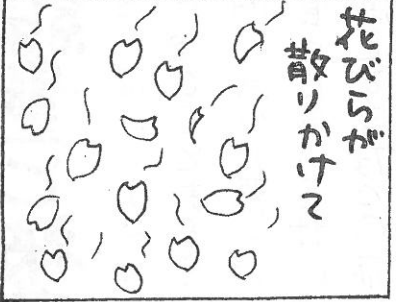 花びらが
散りかけて